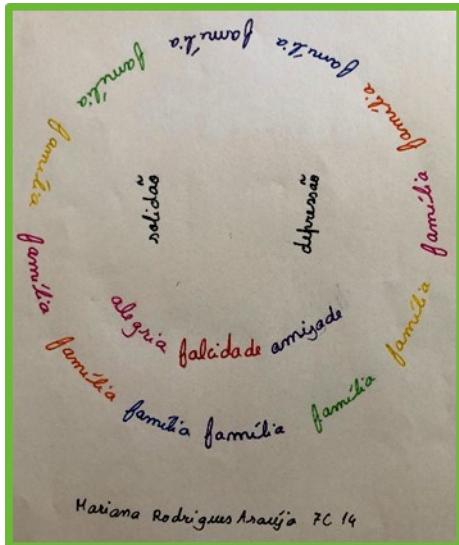 família
família
família
família
família
família
família
família
família
família
família
família
solidão
depressão
alegria falcidade amizade
Mariana Rodrigues Araújo 7C 14